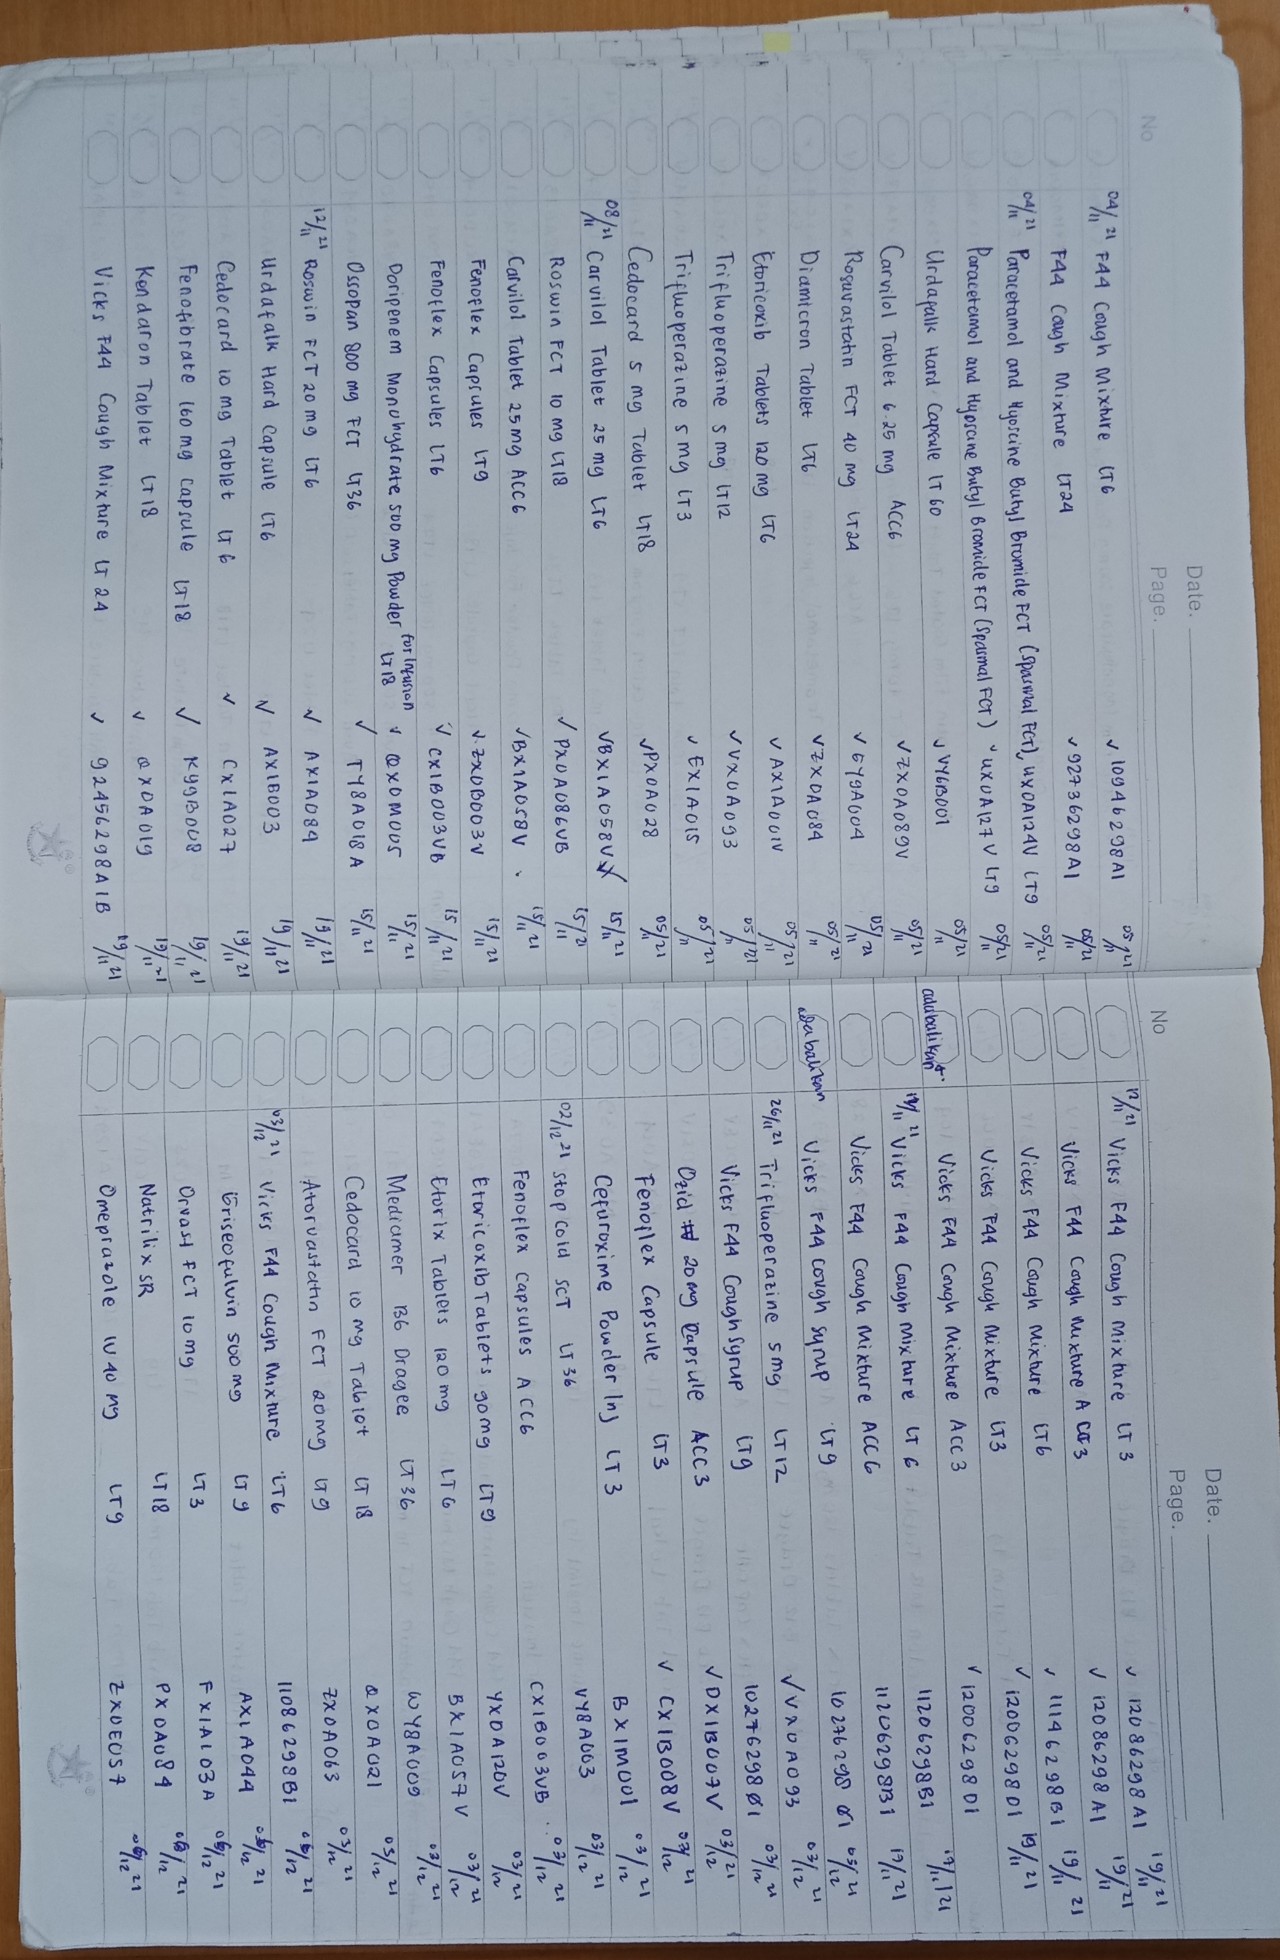 Date.
Page.
No
04/11 21 F44 Cough Mixture LT6 ✓ 10946298A1 05/11 21
F44 Cough Mixture LT24 ✓ 92736298A1 05/11 21
04/11 21 Paracetamol and Hyoscine Butyl Bromide FCT (Spasmal FCT) ✓ UX0A124V LT9 05/11 21
Paracetamol and Hyoscine Butyl Bromide FCT (Spasmal FCT) ✓ UX0A127V LT9 05/11 21
Urdafalk Hard Capsule LT 60 ✓ VY6B001 05/11 21
Carvilol Tablet 6.25 mg ACC6 ✓ ZX0A089V 05/11 21
Rosuvastatin FCT 40 mg LT24 ✓ EY9A004 05/11 21
Diamicron Tablet LT6 ✓ ZX0A084 05/11 21
Etoricoxib Tablets 120 mg LT6 ✓ AX1A001V 05/11 21
Trifluoperazine 5 mg LT12 ✓ VX0A093 05/11 21
Trifluoperazine 5 mg LT3 ✓ EX1A015 05/11 21
Cedocard 5 mg Tablet LT18 ✓ PX0A028 05/11 21
08/11 21 Carvilol Tablet 25 mg LT6 ✓ BX1A058V 15/11 21
Roswin FCT 10 mg LT18 ✓ PX0A086VB 15/11 21
Carvilol Tablet 25 mg ACC6 ✓ BX1A058V 15/11 21
Fenoflex Capsules LT9 ✓ ZX0B003V 15/11 21
Fenoflex Capsules LT6 ✓ CX1B003VB 15/11 21
Doripenem Monohydrate 500 mg Powder for Infusion LT18 ✓ QX0M005 15/11 21
Ossopan 800 mg FCT LT36 ✓ TY8A018A 15/11 21
12/11 21 Roswin FCT 20 mg LT6 ✓ AX1A084 19/11 21
Urdafalk Hard Capsule LT6 ✓ AX1B003 19/11 21
Cedocard 10 mg Tablet LT6 ✓ CX1A027 19/11 21
Fenofibrate 160 mg capsule LT18 ✓ KY9B008 19/11 21
Kendaron Tablet LT18 ✓ QX0A019 19/11 21
Vicks F44 Cough Mixture LT 24 ✓ 92456298A1B 19/11 21
Date.
Page.
No
12/11 21 Vicks F44 Cough Mixture LT 3 ✓ 12086298A1 19/11 21
Vicks F44 Cough Mixture ACC3 ✓ 12086298A1 19/11 21
Vicks F44 Cough Mixture LT6 ✓ 11146298B1 19/11 21
Vicks F44 Cough Mixture LT3 ✓ 12006298D1 19/11 21
adabalikan Vicks F44 Cough Mixture ACC 3 ✓ 12006298D1
Vicks F44 Cough Mixture LT 6 11206298B1 17/11 21
Vicks F44 Cough Mixture ACC 6 11206298B1 17/11 21
adabalikan Vicks F44 Cough Syrup LT9 10276298 03/12 21
26/11 21 Trifluoperazine 5mg LT12 ✓ VX0A093 03/12 21
Vicks F44 Cough Syrup LT9 10276298 03/12 21
Ozid 20 mg Capsule ACC 3 ✓ DX1B007V 03/12 21
Fenoflex Capsule LT3 ✓ CX1B008V 03/12 21
Cefuroxime Powder Inj LT 3 BX1M001 03/12 21
02/12 21 Stop Cold SCT LT 36 VY8A003 03/12 21
Fenoflex Capsules ACC6 CX1B003VB 03/12 21
Etoricoxib Tablets 90mg LT9 YX0A120V 03/12
Etorix Tablets 120 mg LT6 BX1A057V 03/12 21
Mediamer B6 Dragee LT36 WY8A009 03/12 21
Cedocard 10 mg Tablet LT 18 QX0A021 03/12 21
Atorvastatin FCT 20mg LT9 ZX0A063 03/12 21
03/12 21 Vicks F44 Cough Mixture LT6 11086298B1 06/12 21
Griseofulvin 500 mg LT 9 AX1A044 06/12 21
Orvast FCT 10 mg LT3 FX1A103A 06/12 21
Natrilix SR LT18 PX0A084 06/12 21
Omeprazole IV 40 mg LT9 ZX0E057 06/12 21